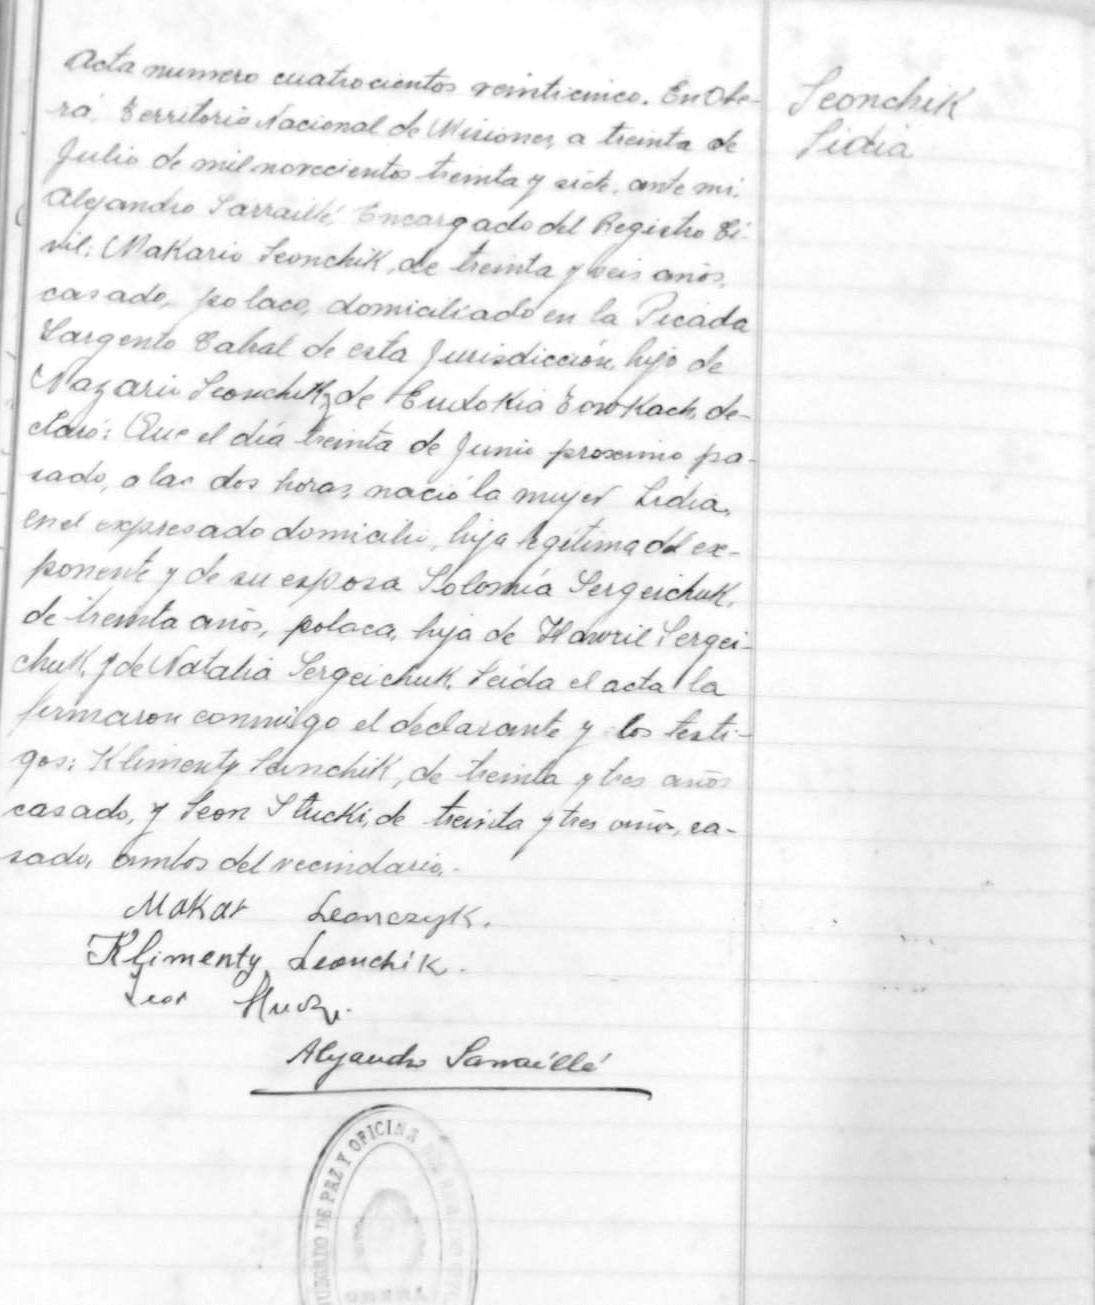 Acta numero cuatrocientos veinticinco. En Obe-
rá, Territorio Nacional de Misiones, a treinta de
Julio de mil novecientos treinta y siete, ante mi:
Alejandro Sarraillé, Encargado del Registro Ci-
vil: Makario Leonchik, de treinta y seis años,
casado, polaco, domiciliado en la Picada
Sargento Cabral de esta Jurisdicción, hijo de
Nazario Leonchik, y de Eudokia Towkach, de-
claró: Que el día treinta de Junio proximo pa-
sado, a las dos horas, nació la mujer Lidia,
en el expresado domicilio, hija legítima del ex-
ponente y de su esposa Solomía Sergeichuk,
de treinta años, polaca, hija de Hawril Sergei-
chuk, y de Natalia Sergeichuk. Leida el acta la
firmaron conmigo el declarante y los testi-
gos: Klimenty Leonchik, de treinta y tres años
casado, y Leon Stucki, de treinta y tres años, ca-
sado, ambos del vecindario.-
Makar Leonczyk.
Klimenty Leonchik.
Leon
Alejandro Sarraillé
JUZGADO DE PAZ Y OFICINA DEL
Leonchik
Lidia